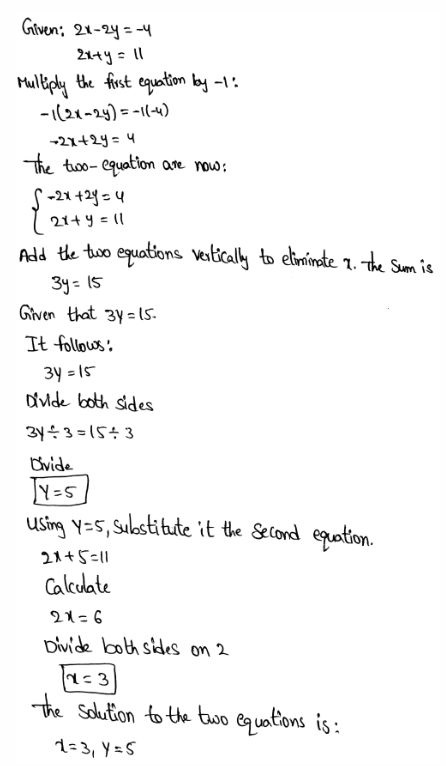 Given: 2x-2y = -4
2x+y = 11
Multiply the first equation by -1:
-1(2x-2y) = -1(-4)
-2x+2y = 4
The two-equation are now:
{ -2x+2y = 4
2x+y = 11
Add the two equations vertically to eliminate x. The sum is
3y = 15
Given that 3y = 15.
It follows:
3y = 15
Divide both sides
3y÷3 = 15÷3
Divide
y=5
Using y=5, substitute it the second equation.
2x+5=11
Calculate
2x = 6
Divide both sides on 2
x = 3
The solution to the two equations is:
x=3, y=5